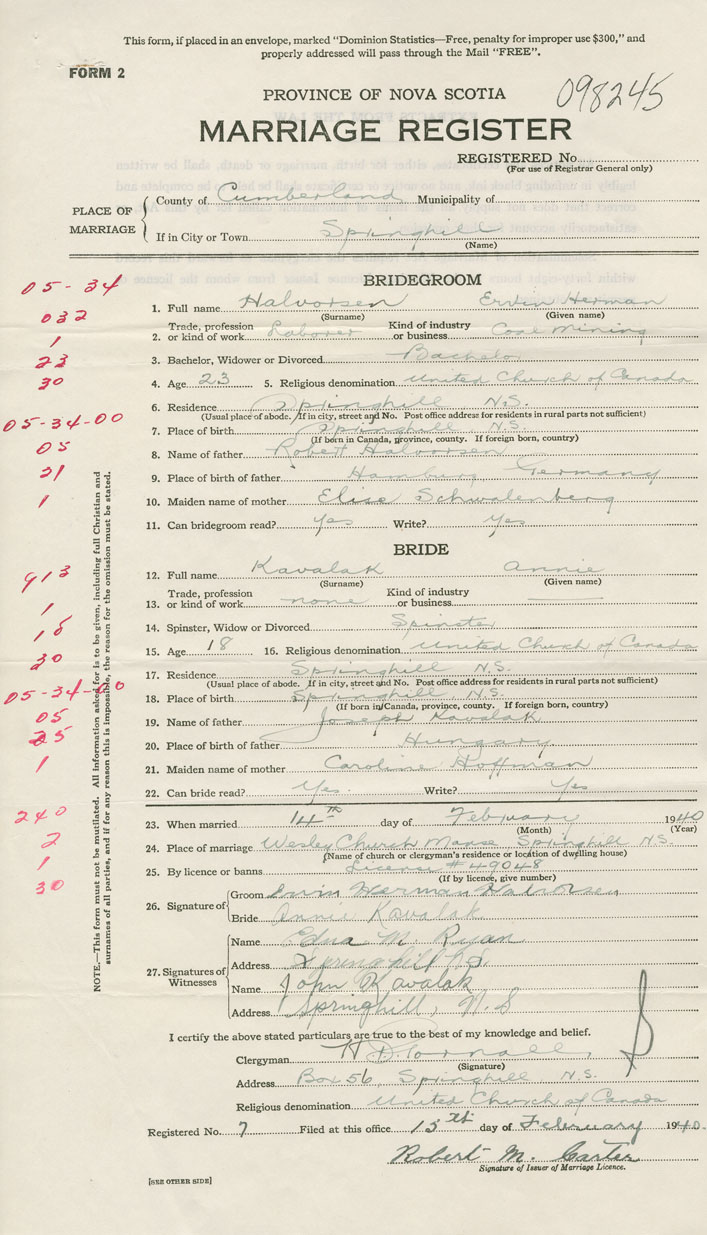 This form, if placed in an envelope, marked "Dominion Statistics—Free, penalty for improper use $300," and
properly addressed will pass through the Mail "FREE".
FORM 2
098245
PROVINCE OF NOVA SCOTIA
MARRIAGE REGISTER
REGISTERED No.
(For use of Registrar General only)
PLACE OF MARRIAGE
County of Cumberland Municipality of
If in City or Town Springhill
(Name)
BRIDEGROOM
05-34
1. Full name Halvorsen Ervin Herman
(Surname) (Given name)
032
2. Trade, profession or kind of work Laborer Kind of industry or business Coal Mining
1
3. Bachelor, Widower or Divorced Bachelor
23
4. Age 23 5. Religious denomination United Church of Canada
30
6. Residence Springhill N.S.
(Usual place of abode. If in city, street and No. Post office address for residents in rural parts not sufficient)
05-34-00
7. Place of birth Springhill N.S.
(If born in Canada, province, county. If foreign born, country)
05
8. Name of father Robert Halvorsen
21
9. Place of birth of father Hamburg Germany
1
10. Maiden name of mother Elise Schwalenberg
11. Can bridegroom read? Yes Write? Yes
BRIDE
913
12. Full name Kavalak Annie
(Surname) (Given name)
1
13. Trade, profession or kind of work none Kind of industry or business
18
14. Spinster, Widow or Divorced Spinster
30
15. Age 18 16. Religious denomination United Church of Canada
17. Residence Springhill N.S.
(Usual place of abode. If in city, street and No. Post office address for residents in rural parts not sufficient)
05-34-00
18. Place of birth Springhill N.S.
(If born in Canada, province, county. If foreign born, country)
05
19. Name of father Joseph Kavalak
25
20. Place of birth of father Hungary
1
21. Maiden name of mother Caroline Hoffman
22. Can bride read? Yes. Write? Yes
240
23. When married 14th day of February 1940
(Month) (Year)
2
24. Place of marriage Wesley Church Manse Springhill N.S.
(Name of church or clergyman's residence or location of dwelling house)
1
25. By licence or banns License # 49048
(If by licence, give number)
30
26. Signature of
Groom Ervin Herman Halvorsen
Bride Annie Kavalak
27. Signatures of Witnesses
Name Edna M. Ryan
Address Springhill N.S.
Name John Kavalak
Address Springhill, N.S
I certify the above stated particulars are true to the best of my knowledge and belief.
Clergyman
(Signature)
Address Box 56, Springhill N.S.
Religious denomination United Church of Canada
Registered No. 7 Filed at this office 15th day of February 1940.
Robert M. Carter
Signature of Issuer of Marriage Licence.
[SEE OTHER SIDE]
NOTE.—This form must not be mutilated. All information asked for is to be given, including full Christian and
surnames of all parties, and if for any reason this is impossible, the reason for the omission must be stated.